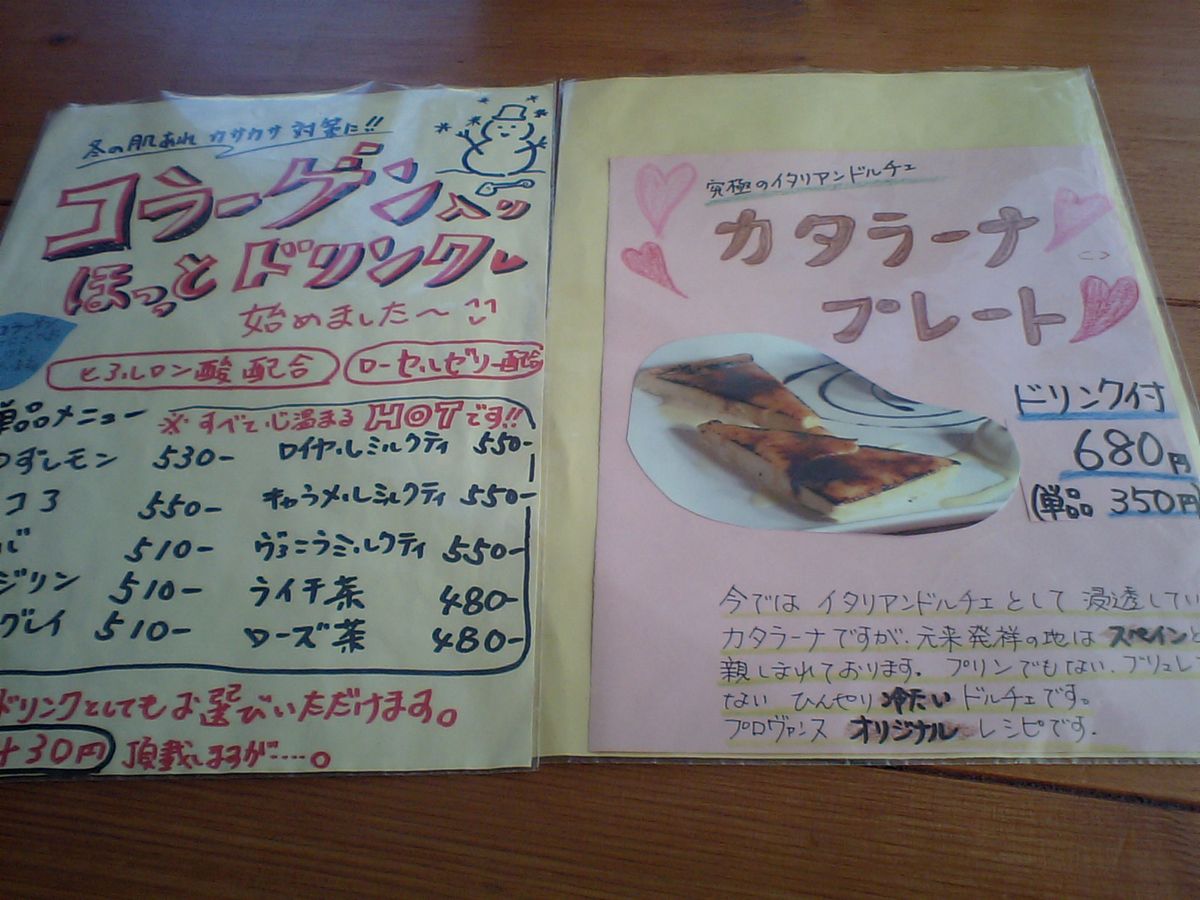 冬の肌あれ カサカサ 対策に!!
コラーゲン入り
ほっとドリンク
始めました～
ヒアルロン酸配合
ローヤルゼリー配合
単品メニュー
※すべて心温まるHOTです!!
ゆずレモン 530-
ロイヤルミルクティ 550-
ココア 550-
キャラメルミルクティ 550-
510-
ヴァニラミルクティ 550-
ジリン 510-
ライチ茶 480-
グレイ 510-
ローズ茶 480-
ドリンクとしてもお選びいただけます。
+30円 頂戴しますが……。
究極のイタリアンドルチェ
カタラーナ
プレート
ドリンク付
680円
(単品 350円
今では イタリアンドルチェ として 浸透してい
カタラーナですが、元来発祥の地は スペインと
親しまれております。プリンでもない、ブリュレで
ない ひんやり冷たい ドルチェです。
プロヴァンス オリジナル レシピです。